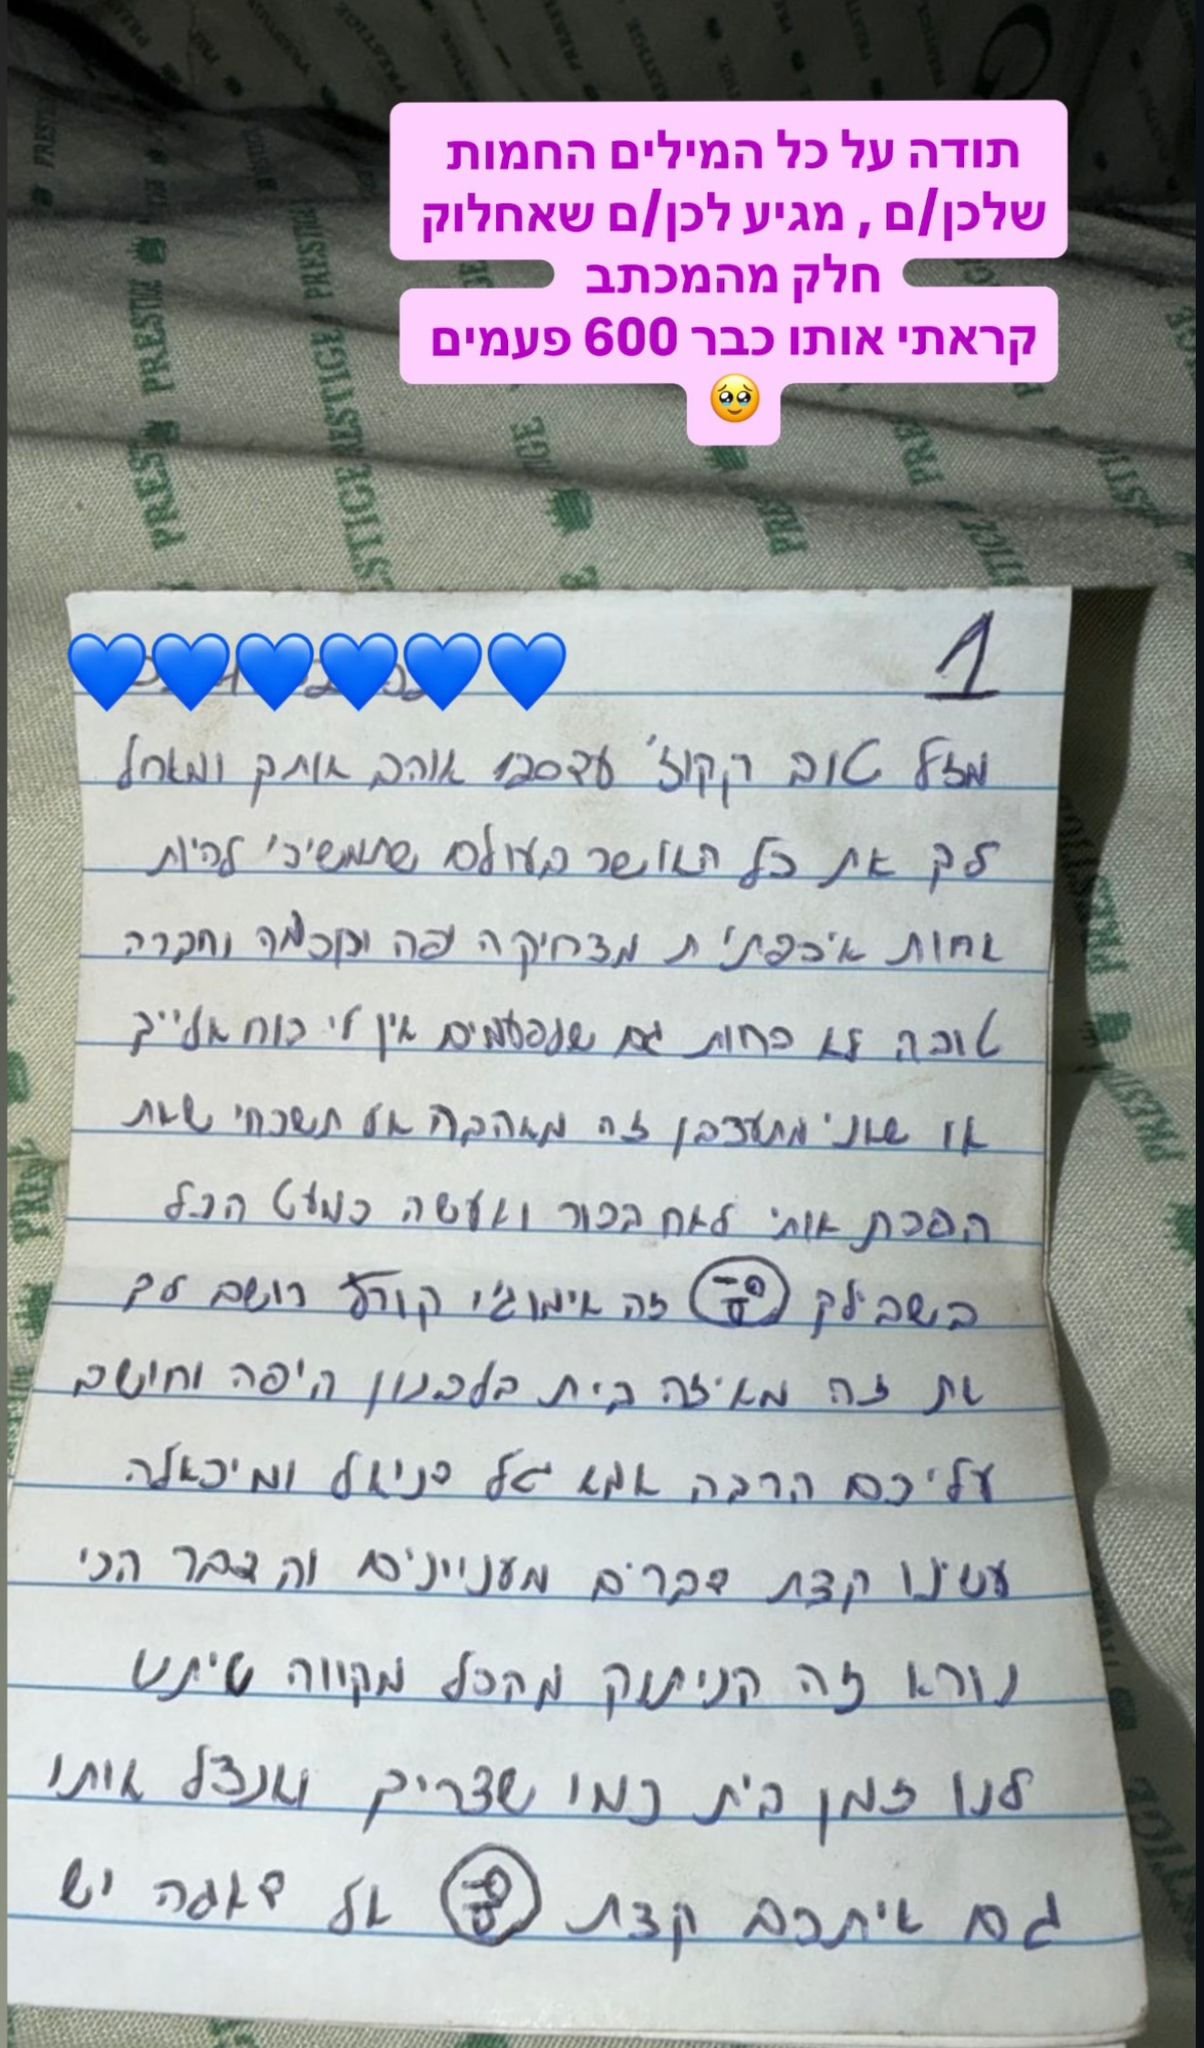 תודה על כל המילים החמות
שלכן/ם , מגיע לכן/ם שאחלוק
חלק מהמכתב
קראתי אותו כבר 600 פעמים
1
מזל טוב עד 120 אוהב אותך ומאחל
לך את כל האושר בעולם שתמשיכי להיות
אחות איכפתית מצחיקה יפה וחכמה וחברה
טובה לא פחות גם שלפעמים אין לי כוח אלייך
או שאני מתעצבן זה מאהבה אל תשכחי שאת
הפכת אותי לאח בכור ואעשה כמעט הכל
בשבילך זה אימוג'י קורץ רושם לך
את זה מאיזה בית בלבנון היפה וחושב
עליכם הרבה אמא גל דניאל ומיכאלה
עשינו קצת דברים מעניינים והדבר הכי
נורא זה הניתוק מהכל מקווה שיתנו
לנו זמן בית כמו שצריך ואנצל אותו
גם איתכם קצת אל דאגה יש
PRESTIGE